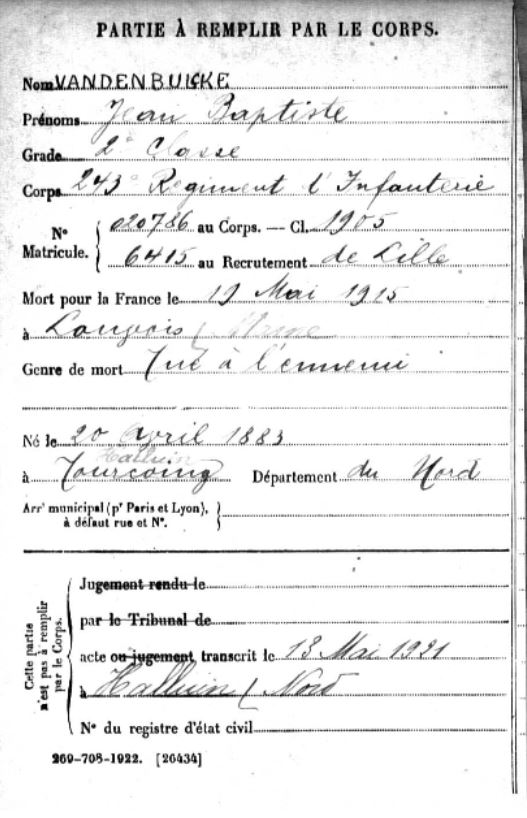 PARTIE À REMPLIR PAR LE CORPS.
Nom VANDENBULCKE
Prénoms Jean Baptiste
Grade 2e Classe
Corps 243e Régiment d'Infanterie
N° Matricule. 020786 au Corps. — Cl. 1905
6415 au Recrutement de Lille
Mort pour la France le 19 Mai 1915
à
Genre de mort Tué à l'ennemi
Né le 20 Avril 1883
Halluin
à Tourcoing Département du Nord
Arrt municipal (pr Paris et Lyon),
à défaut rue et N°.
Cette partie n'est pas à remplir par le Corps.
Jugement rendu le
par le Tribunal de
acte ou jugement transcrit le 13 Mai 1921
à Halluin (Nord
N° du registre d'état civil
269-708-1922. [26434]